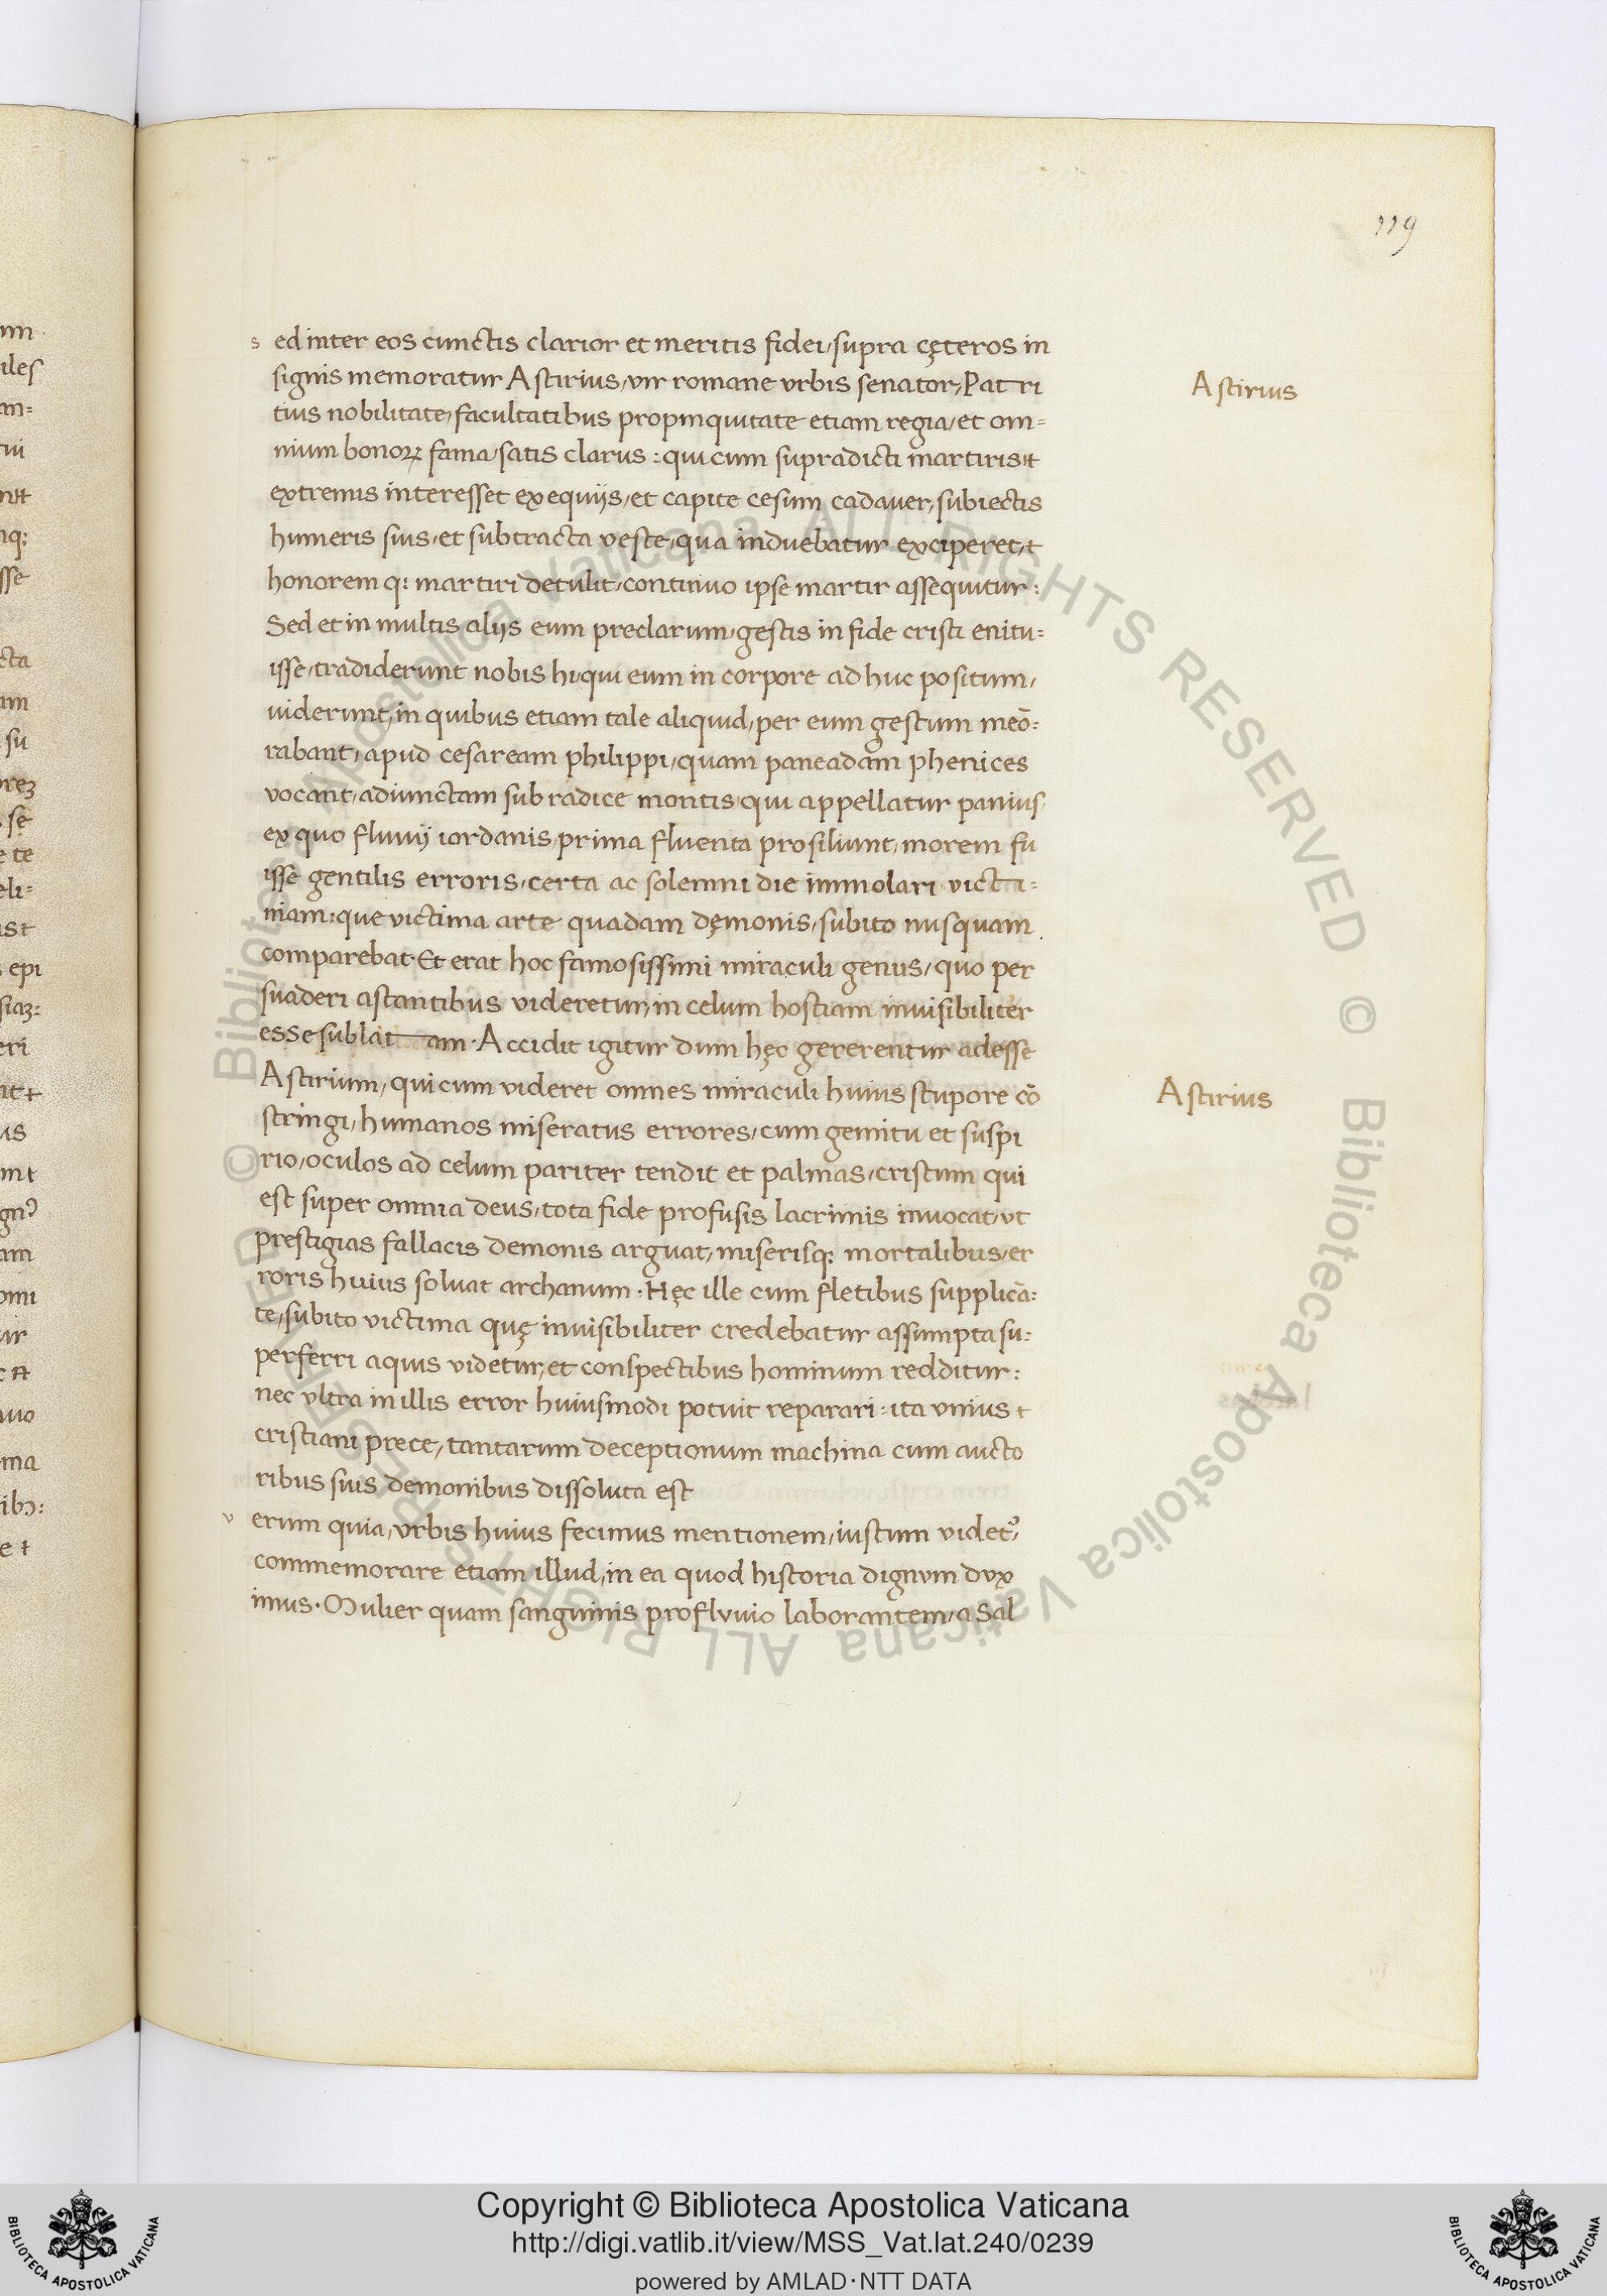 119
s ed inter eos cunctis clarior et meritis fidei, supra cęteros in
signis memoratur Astirius, vir romane vrbis senator, Patri
tius nobilitate, facultatibus propinquitate etiam regia, et om=
nium bonoꝝ fama, satis clarus: qui cum supradicti martiris
extremis interesset exequijs, et capite cesum cadauer, subiectis
humeris suis, et subtracta veste, qua induebatur exciperet,
honorem q: martiri detulit, continuo ipse martir assequitur:
Sed et in multis alijs eum preclarum, gestis in fide cristi enitu=
isse, tradiderunt nobis hi, qui eum in corpore ad huc positum,
uiderunt, in quibus etiam tale aliquid, per eum gestum meō:
rabant, apud cesaream philippi, quam paneadam phenices
vocant, adiunctam sub radice montis, qui appellatur panius,
ex quo fluuij iordanis, prima fluenta prosiliunt, morem fu
isse gentilis erroris, certa ac solemni die immolari victi=
mam: que victima arte quadam dęmonis, subito nusquam
comparebat. Et erat hoc famosissimi miraculi genus, quo per
suaderi astantibus videretur, in celum hostiam inuisibiliter
esse sublatam. Accidit igitur dum hęc gererentur adesse
Astirium, qui cum videret omnes miraculi huius stupore cō
stringi, humanos miseratus errores, cum gemitu et suspi
rio, oculos ad celum pariter tendit et palmas, cristum qui
est super omnia deus, tota fide profusis lacrimis inuocat, vt
prestigias fallacis demonis arguat, miserisq: mortalibus, er
roris huius soluat archanum. Hęc ille cum fletibus supplicā:
te, subito victima quę inuisibiliter credebatur assumpta su:
perferri aquis videtur, et conspectibus hominum redditur:
nec vltra in illis error huiusmodi potuit reparari: ita vnius
cristiani prece, tantarum deceptionum machina cum aucto
ribus suis demonibus dissoluta est
v erum quia, vrbis huius fecimus mentionem, iustum videt᷒,
commemorare etiam illud, in ea quod historia dignum dux
imus. Mulier quam sanguinis profluuio laborantem, a Sal
Astirius
Astirius
© Biblioteca Apostolica Vaticana ALL RIGHTS RESERVED © Biblioteca Apostolica Vaticana ALL RIGHTS RESERVED
Copyright © Biblioteca Apostolica Vaticana
http://digi.vatlib.it/view/MSS_Vat.lat.240/0239
powered by AMLAD·NTT DATA
BIBLIOTECA APOSTOLICA VATICANA
BIBLIOTECA APOSTOLICA VATICANA